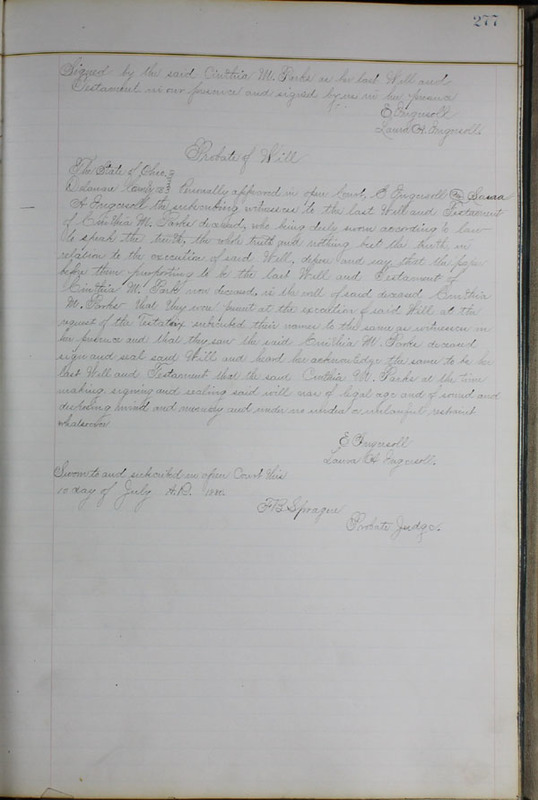 277
Signed by the said Cinthia M. Parks as her last Will and
Testament in our presence and signed by us in her presence
E Ingersoll
Laura H. Ingersoll
Probate of Will
The State of Ohio
Delaware County SS Personally appeared in open Court, E Ingersoll & Laura
H Ingersoll the subscribing witnesses to the last Will and Testament
of Cinthia M. Parks deceased, who being duly sworn according to law
to speak the truth, the whole truth and nothing but the truth in
relation to the execution of said Will, depose and say that the paper
before them purporting to be the last Will and Testament of
Cinthia M. Park now deceased, is the will of said deceased Cinthia
M. Parks that they were present at the execution of said Will at the
request of the Testatory subscribed their names to the same as witnesses in
her presence and that they saw the said Cinthia M. Parks deceased
sign and seal said Will and heard her acknowledge the same to be her
last Will and Testament that the said Cinthia M. Parks at the time
making, signing and sealing said will was of legal age and of sound and
disposing mind and memory and under no undue or unlawful restraint
whatsoever
E Ingersoll
Laura H Ingersoll.
Sworn to and subscribed in open Court this
10 day of July A.D.
F B. Sprague
Probate Judge.